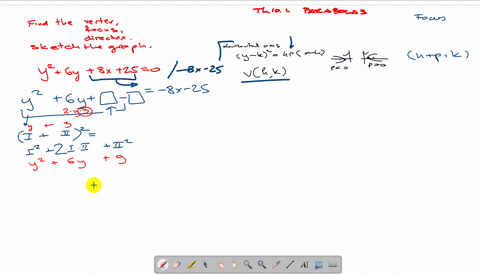 Find the vertex,
focus,
directrix.
sketch the graph.
PARABOLAS
Focus
y² + 6y + 8x + 25 = 0 / -8x - 25
(y-k)² = 4p(x-h)
p<0
p>0
(h+p, k)
V(h,k)
y² + 6y + □ - □ = -8x - 25
2·y·3
y + 3
(I + II)² =
I² + 2·I·II + II²
y² + 6y + 9
+